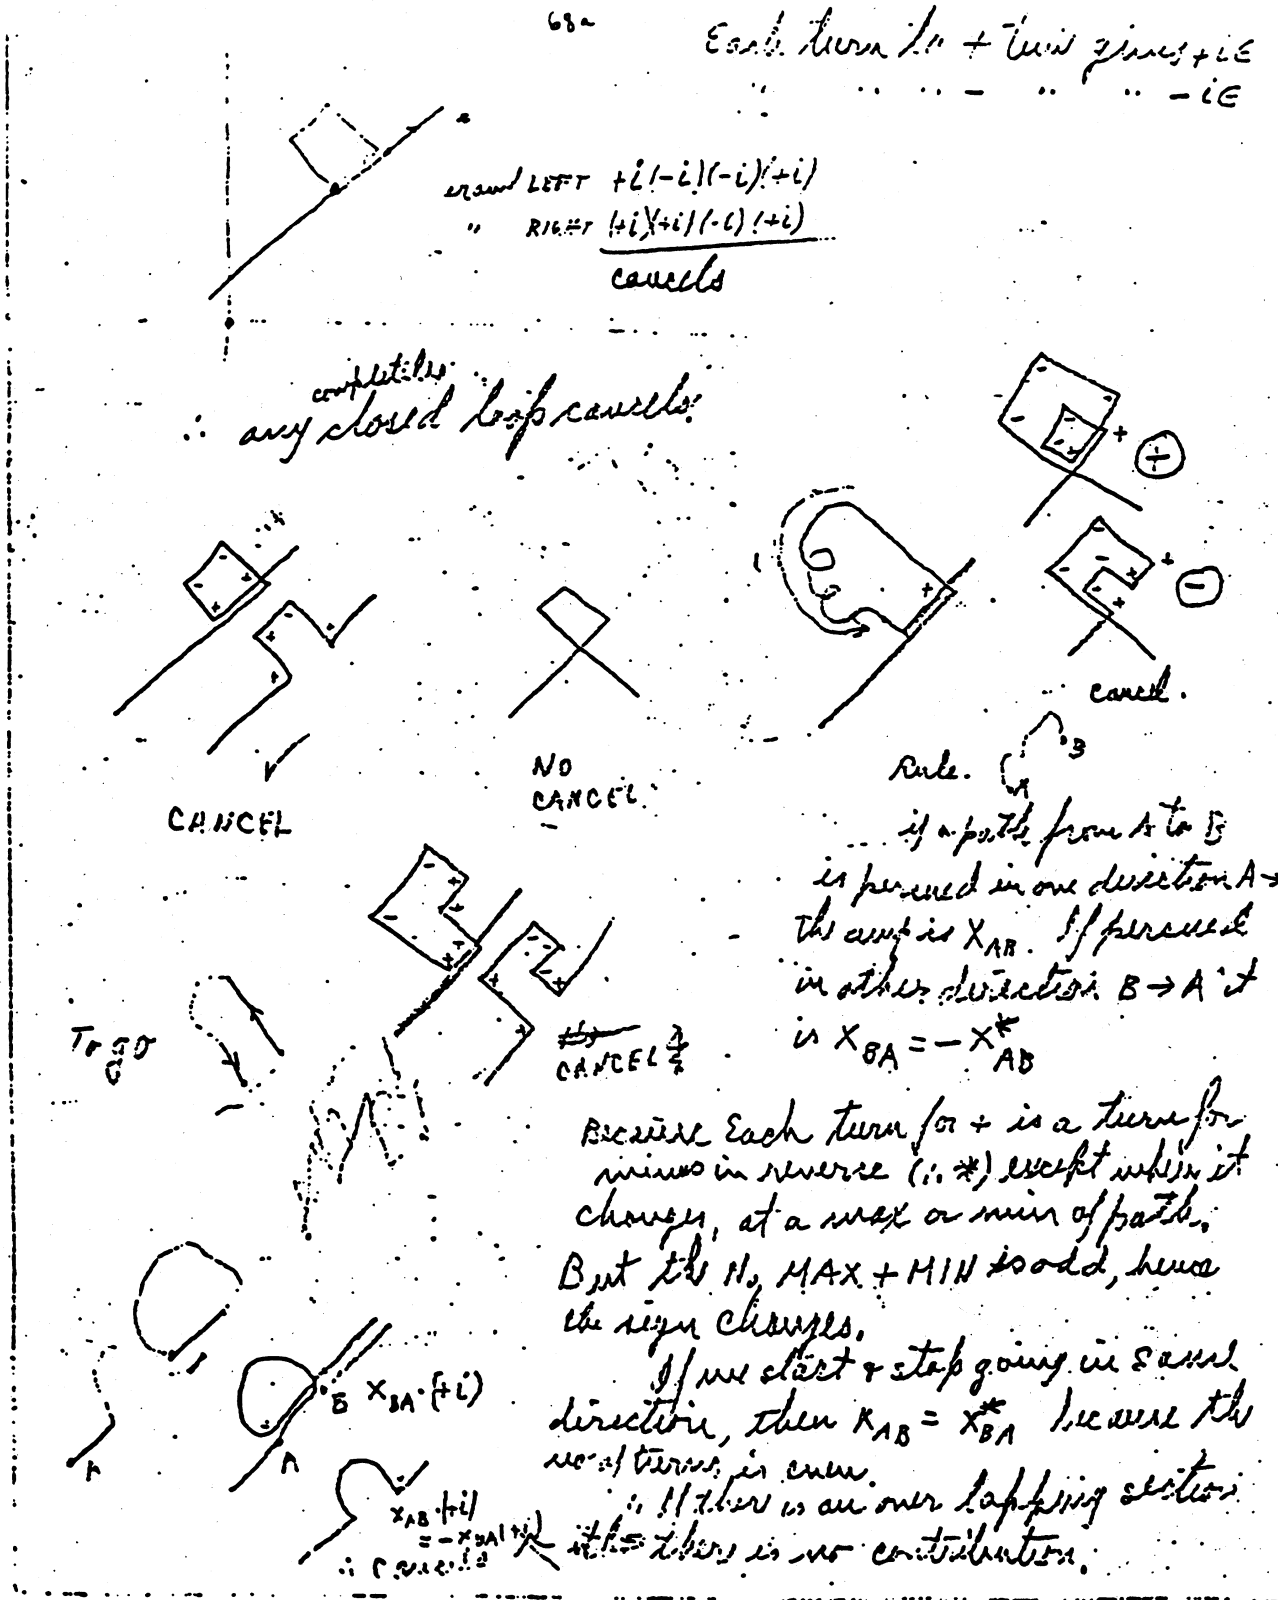 68a
Each turn to + turn gives +iε
" " " - " " -iε
around LEFT +i(-i)(-i)(+i)
" RIGHT (+i)(+i)(-i)(+i)
cancels
completely
∴ any closed loop cancels.
+ ⊕
+ ⊖
cancel.
CANCEL
NO
CANCEL.
Rule.
B
A
if a path from A to B
is perused in one direction A→
the amp is X_AB. If perused
in other direction B→A it
is X_BA = -X*_AB
To go
CANCEL
Because Each turn for + is a turn for
minus in reverse (∴ *) except when it
changes, at a max or min of path.
But the No. MAX + MIN is odd, hence
the sign changes.
If we start & stop going in same
direction, then X_AB = X*_BA because the
no of turns is even.
∴ If there is an over lapping section
there is no contribution.
B X_BA·(+i)
A
A
X_AB·(+i)
= -X_BA(+i)
∴ Cancels